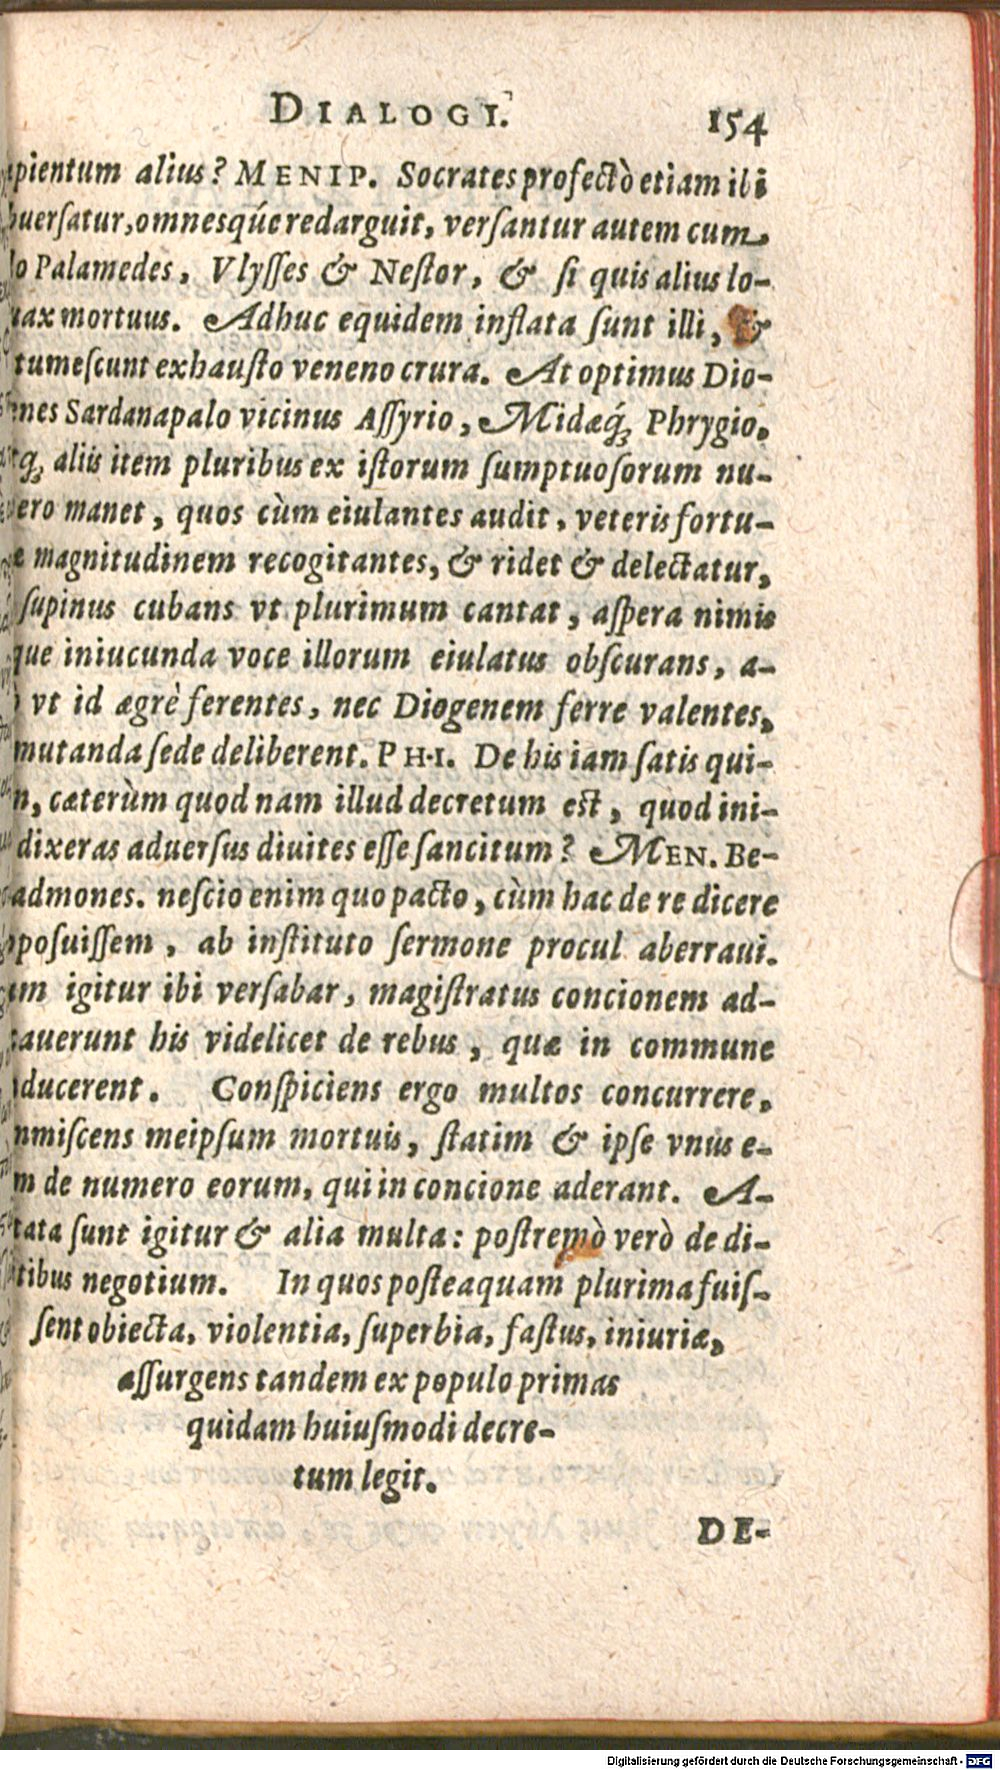 DIALOGI. 154
pientum alius? MENIP. Socrates profectò etiam ibi
uersatur, omnesq́ue redarguit, versantur autem cum
lo Palamedes, Vlysses & Nestor, & si quis alius lo-
uax mortuus. Adhuc equidem inflata sunt illi, &
tumescunt exhausto veneno crura. At optimus Dio-
nes Sardanapalo vicinus Assyrio, Midæq́; Phrygio,
q; aliis item pluribus ex istorum sumptuosorum nu-
ero manet, quos cùm eiulantes audit, veteris fortu-
æ magnitudinem recogitantes, & ridet & delectatur,
supinus cubans vt plurimum cantat, aspera nimis
que iniucunda voce illorum eiulatus obscurans, a-
vt id ægrè ferentes, nec Diogenem ferre valentes,
mutanda sede deliberent. PHI. De his iam satis qui-
n, cæterùm quod nam illud decretum est, quod ini-
dixeras aduersus diuites esse sancitum? MEN. Be-
admones. nescio enim quo pacto, cùm hac de re dicere
posuissem, ab instituto sermone procul aberraui.
um igitur ibi versabar, magistratus concionem ad-
auerunt his videlicet de rebus, quæ in commune
ducerent. Conspiciens ergo multos concurrere,
mmiscens meipsum mortuis, statim & ipse vnus e-
m de numero eorum, qui in concione aderant. A-
tata sunt igitur & alia multa: postremò verò de di-
tibus negotium. In quos posteaquam plurima fuis-
sent obiecta, violentia, superbia, fastus, iniuriæ,
assurgens tandem ex populo primas
quidam huiusmodi decre-
tum legit.
DE-
Digitalisierung gefördert durch die Deutsche Forschungsgemeinschaft - DFG